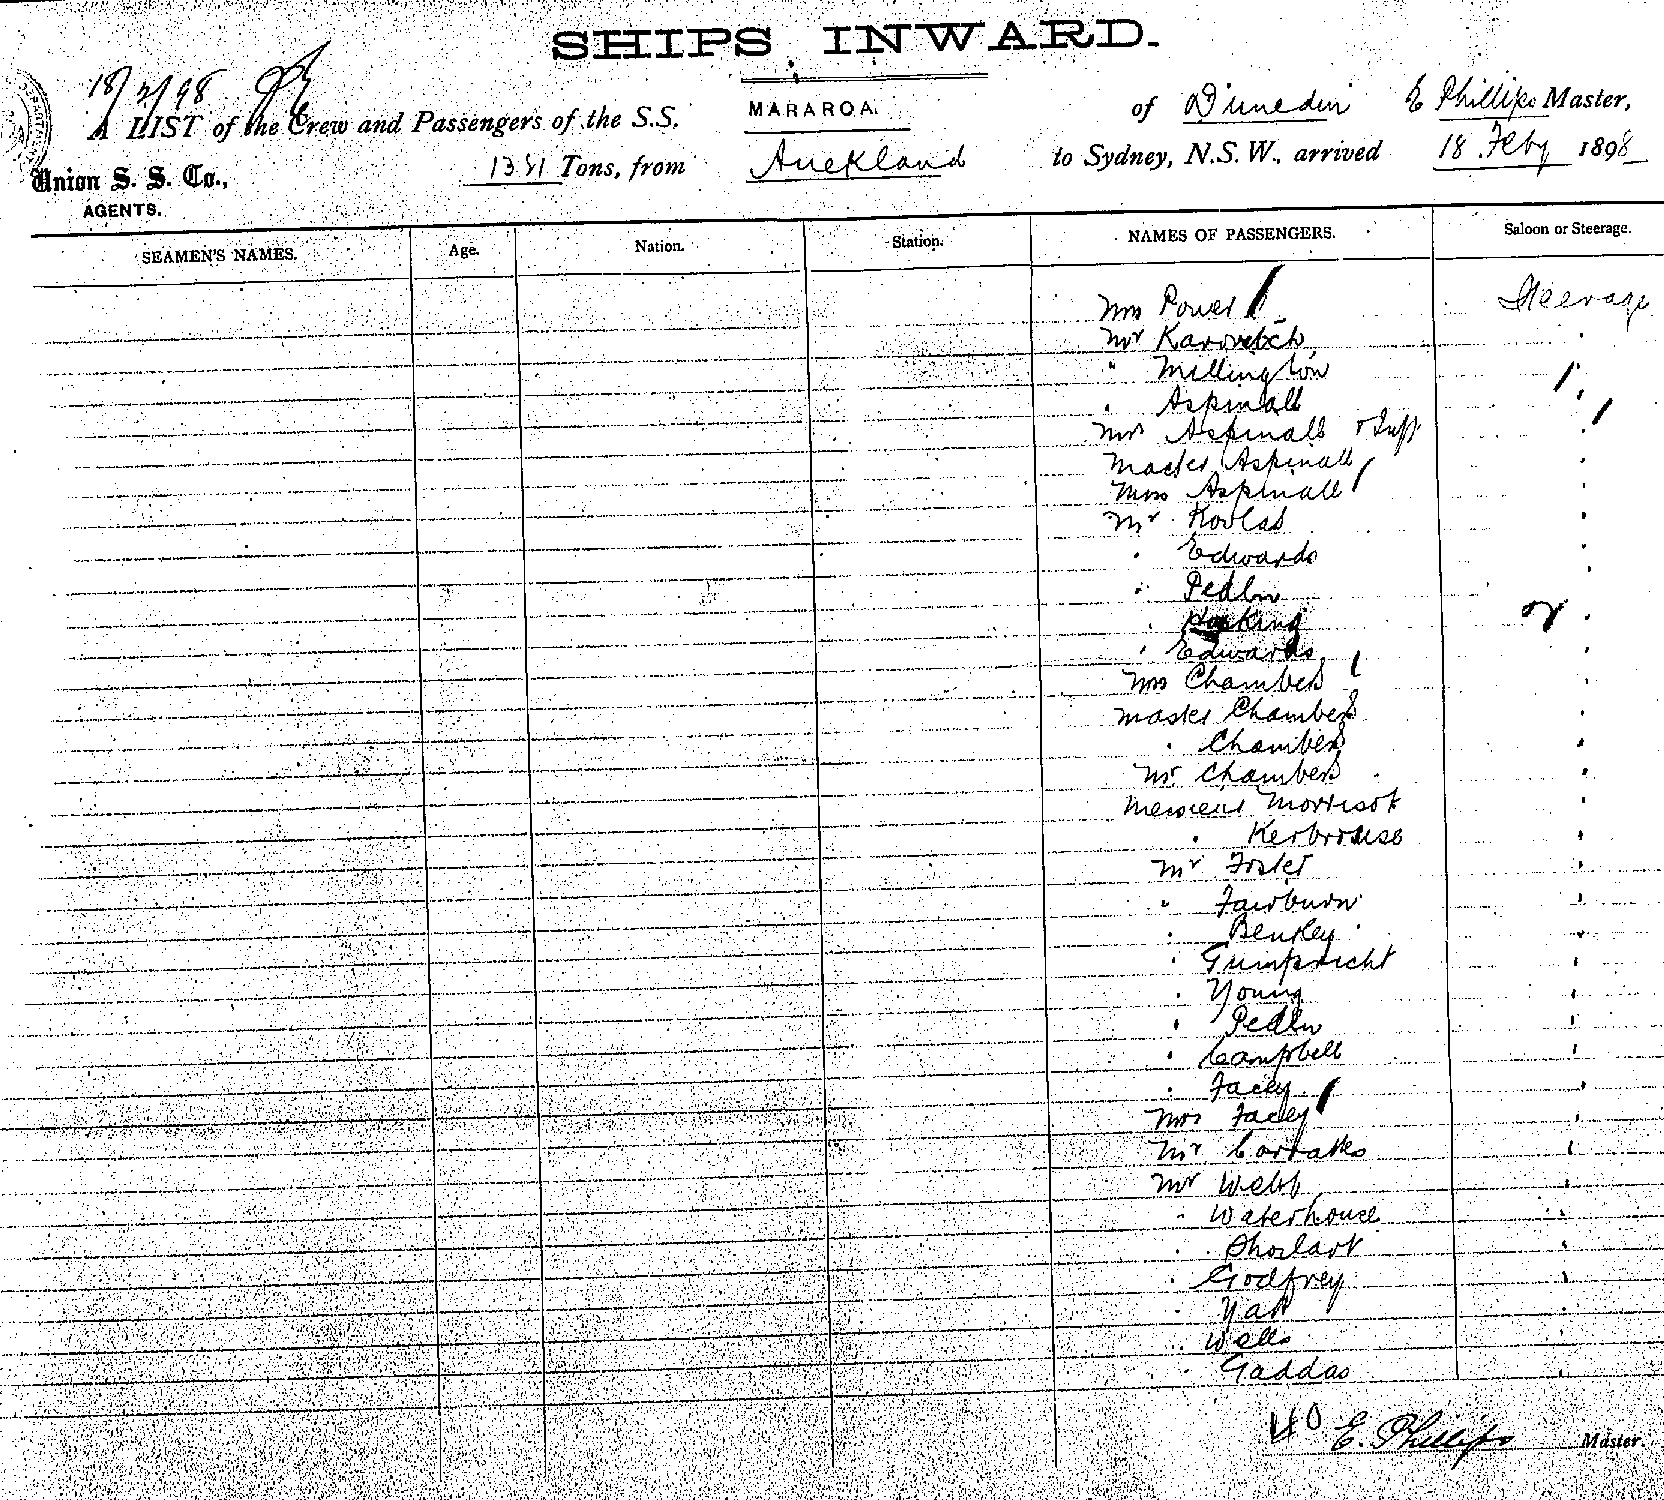 SHIPS INWARD.
18/2/98
A LIST of the Crew and Passengers of the S.S. MARAROA. of Dunedin E Phillips Master,
1381 Tons, from Auckland to Sydney, N.S.W., arrived 18 Feby 1898
Union S. S. Co.,
AGENTS.
SEAMEN'S NAMES. Age. Nation. Station. NAMES OF PASSENGERS. Saloon or Steerage.
Mrs Power Steerage
Mr Karovetch
" Millington
" Aspinall
Mrs Aspinall + Inft
Master Aspinall
Miss Aspinall
Mr
" Edwards
" Pedlar
" Hosking
" Edwards
Mrs Chambers
Master Chambers
" Chambers
Mr Chambers
Messieurs
"
Mr Foster
" Fairburn
" Benkey
" Gumpricht
" Young
" Pedlar
" Campbell
" Facey
Mrs Facey
Mr
Mr Webb
" Waterhouse
"
" Godfrey
"
" Wells
" Gaddas
40 E. Phillips Master.